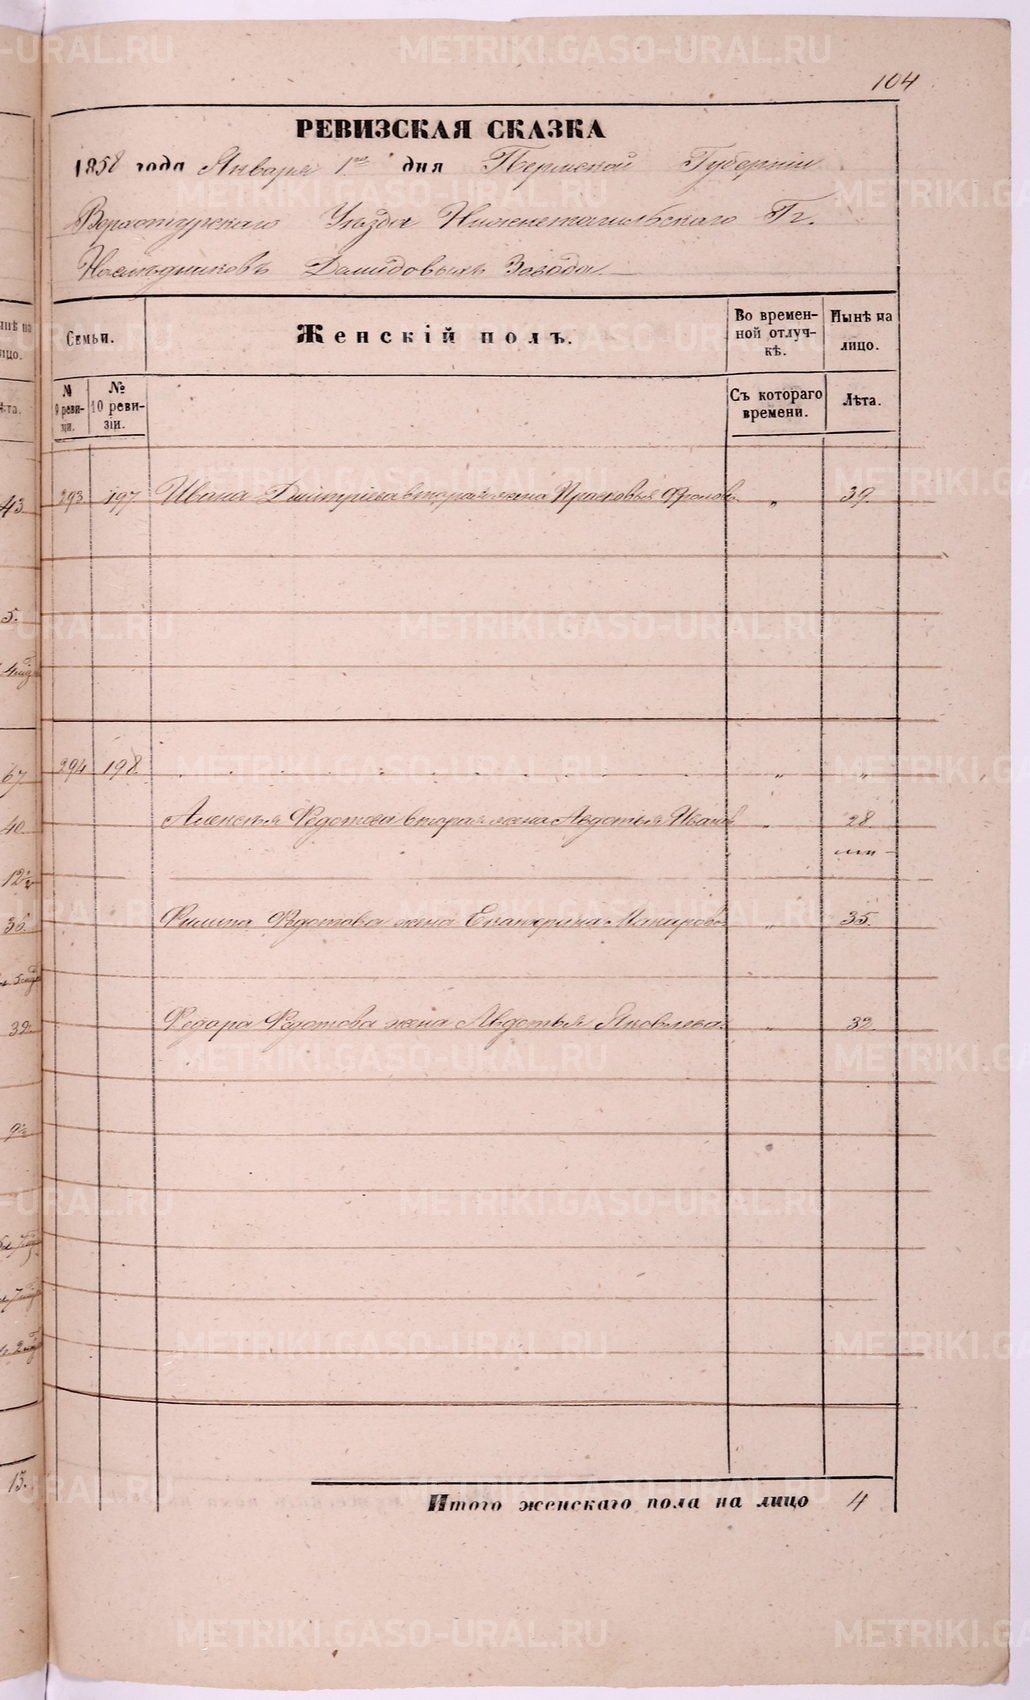 104
РЕВИЗСКАЯ СКАЗКА
1858 года Января 1го дня Пермской Губерніи
Верхотурскаго Уѣзда Нижнетагильскаго Гг.
Наслѣдниковъ Демидовыхъ Завода
Семьи. Женскій полъ. Во времен- Нынѣ на
ной отлуч- лицо.
кѣ.
№ № Съ котораго Лѣта.
9 реви- 10 реви- времени.
зіи. зіи.
293 197 Ивана Дмитріева вторая жена Прасковья Фролова „ 39.
294 198. „ „
Алексѣя Федотова вторая жена Авдотья Иванов „ 28.
Филипа Федотова жена Екатерина Макарова „ 35.
Федора Федотова жена Авдотья Яковлева „ 32.
Итого женскаго пола на лицо 4
43
5.
67
40
12½
36.
32.
9½
13.
METRIKI.GASO-URAL.RU